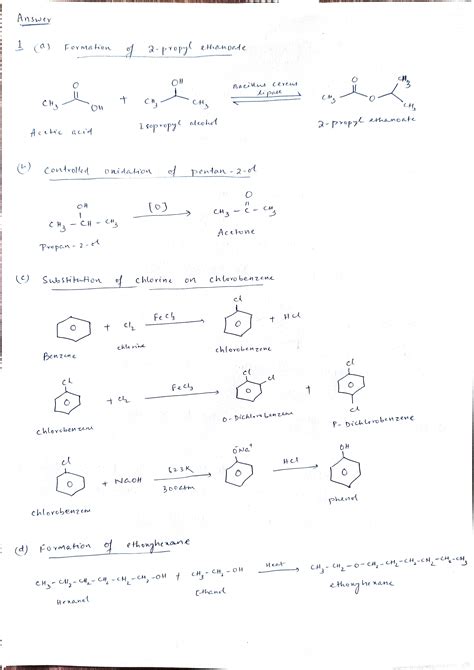 Answer
1 (a) Formation of 2-propyl ethanoate
O OH O CH3
CH3 OH + CH3 CH3 Bacillus cereus lipase CH3 O CH3
Acetic acid Isopropyl alcohol 2-propyl ethanoate
(b) Controlled oxidation of pentan-2-ol
OH O
CH3 - CH - CH3 [O] CH3 - C - CH3
Propan-2-ol Acetone
(c) Substitution of chlorine on chlorobenzene
Cl
+ Cl2 FeCl3 + HCl
Benzene chlorine chlorobenzene
Cl Cl Cl Cl
+ Cl2 FeCl3 +
Cl
chlorobenzene O-Dichlorobenzene P-Dichlorobenzene
Cl ONa+ OH
+ NaOH 623K 300atm HCl
chlorobenzene phenol
(d) Formation of ethoxyhexane
CH3-CH2-CH2-CH2-CH2-CH2-OH + CH3-CH2-OH Heat CH3-CH2-O-CH2-CH2-CH2-CH2-CH2-CH3
Hexanol Ethanol ethoxyhexane